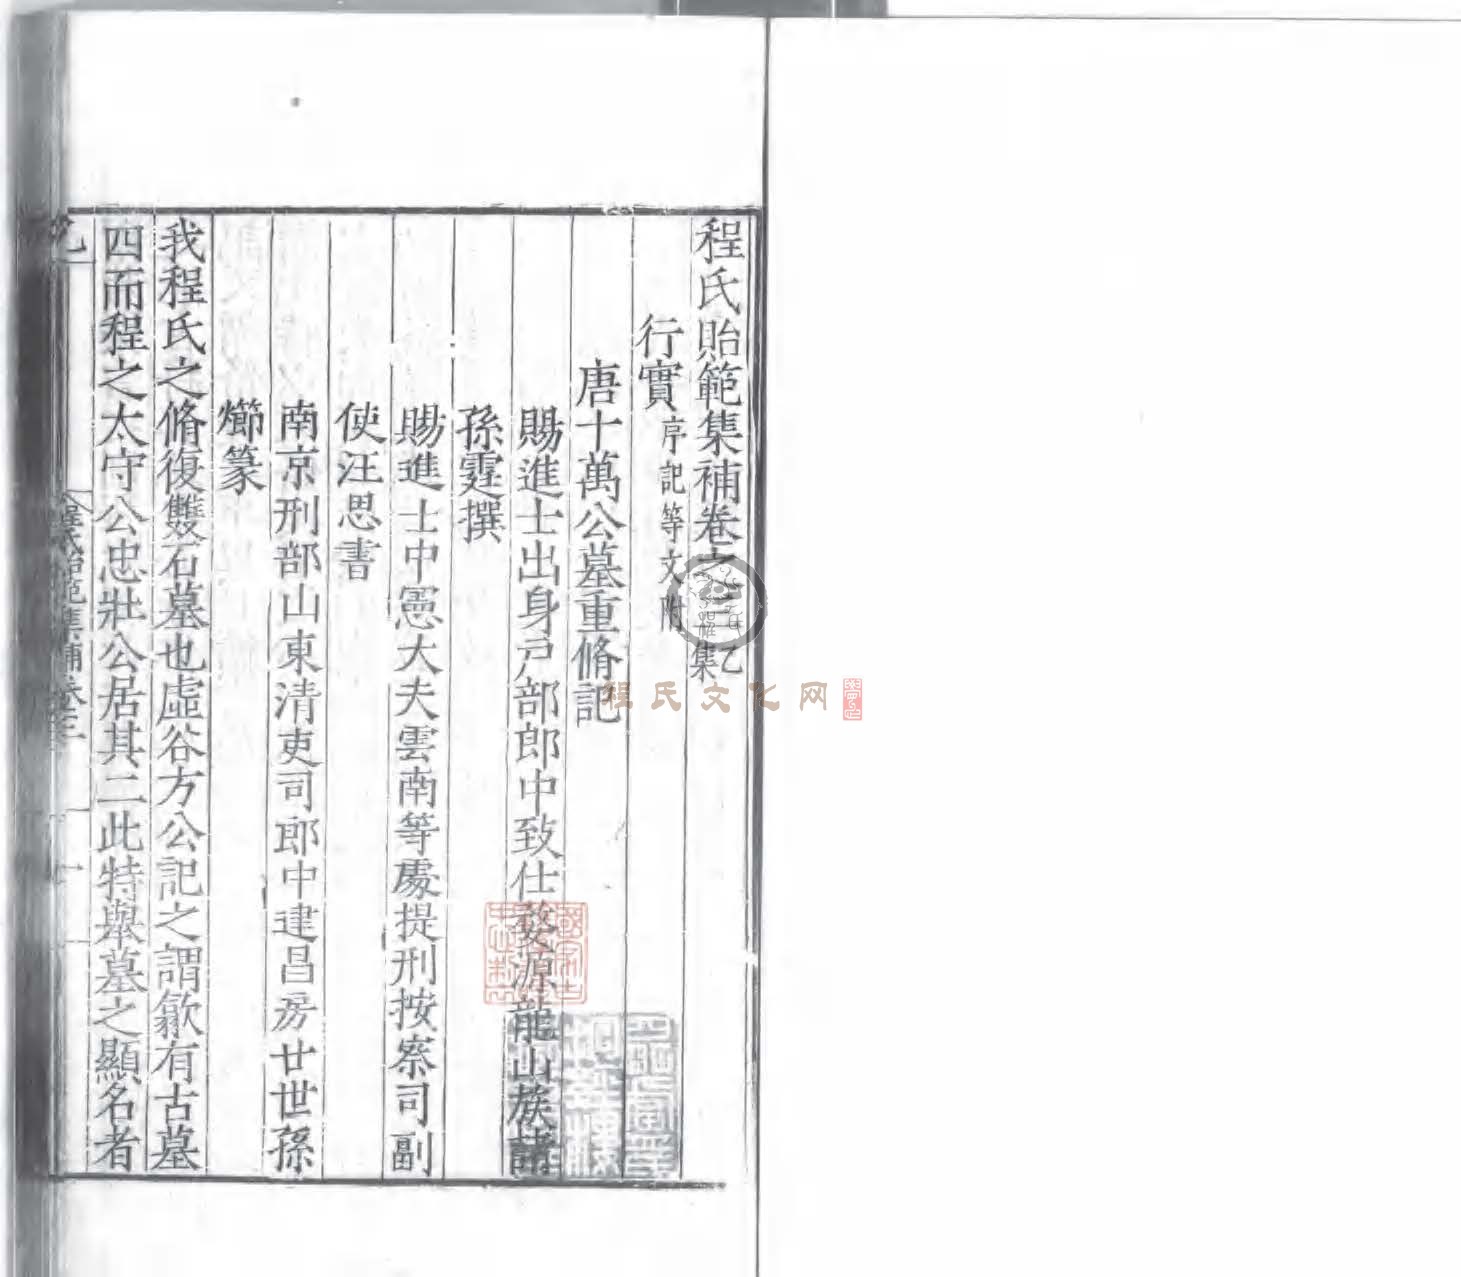 程氏貽範集補卷之三乙集
行實序記等文附
唐十萬公墓重脩記
賜進士出身戶部郎中致仕婺源龍山族諸
孫霆撰
賜進士中憲大夫雲南等處提刑按察司副
使汪思書
南京刑部山東清吏司郎中建昌房廿世孫
㸅篆
我程氏之脩復雙石墓也虛谷方公記之謂歙有古墓
四而程之太守公忠壯公居其二此特舉墓之顯名者
程氏貽範集補卷三
一
程氏文化网